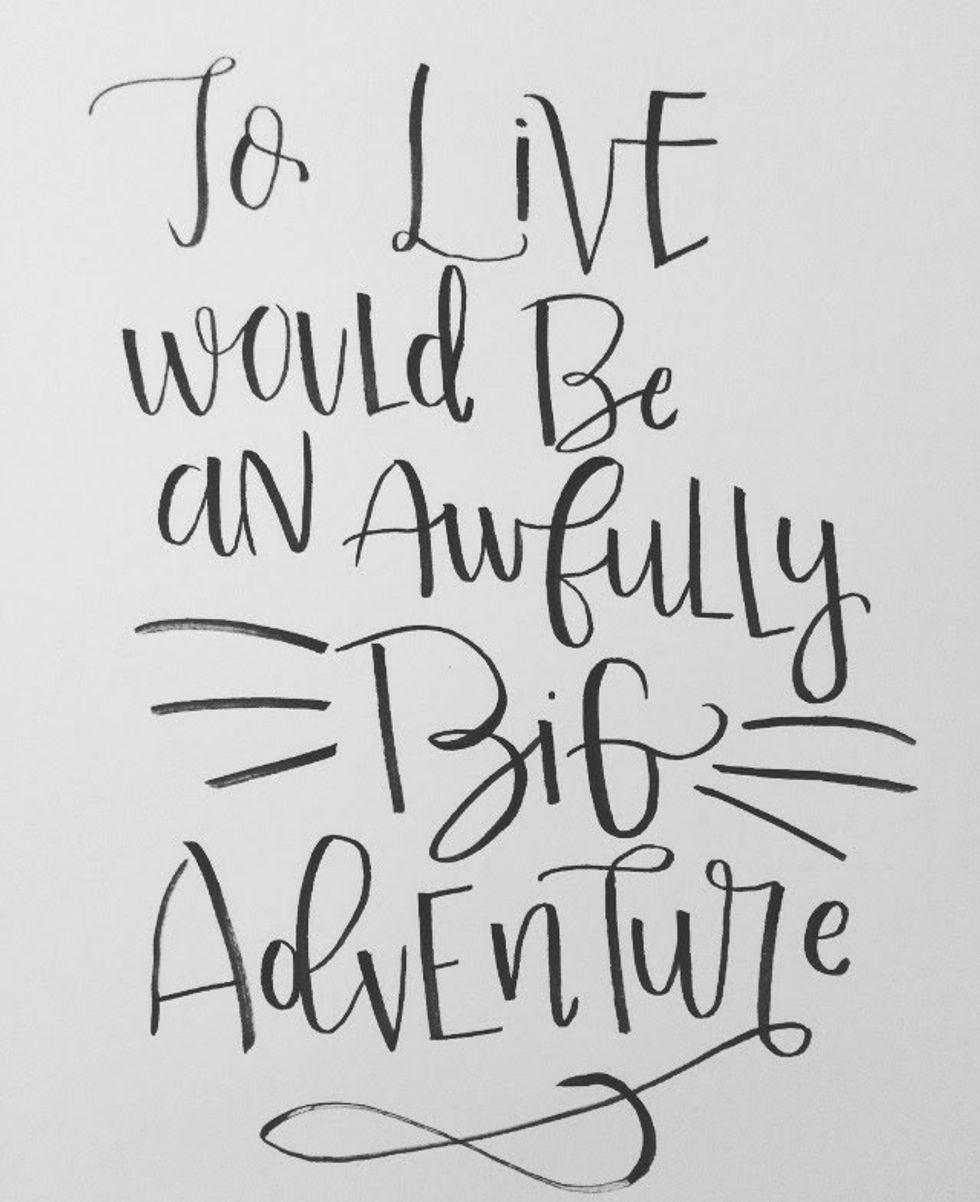 To LiVE
would Be
aN Awfully
BiG
AdvEnTure